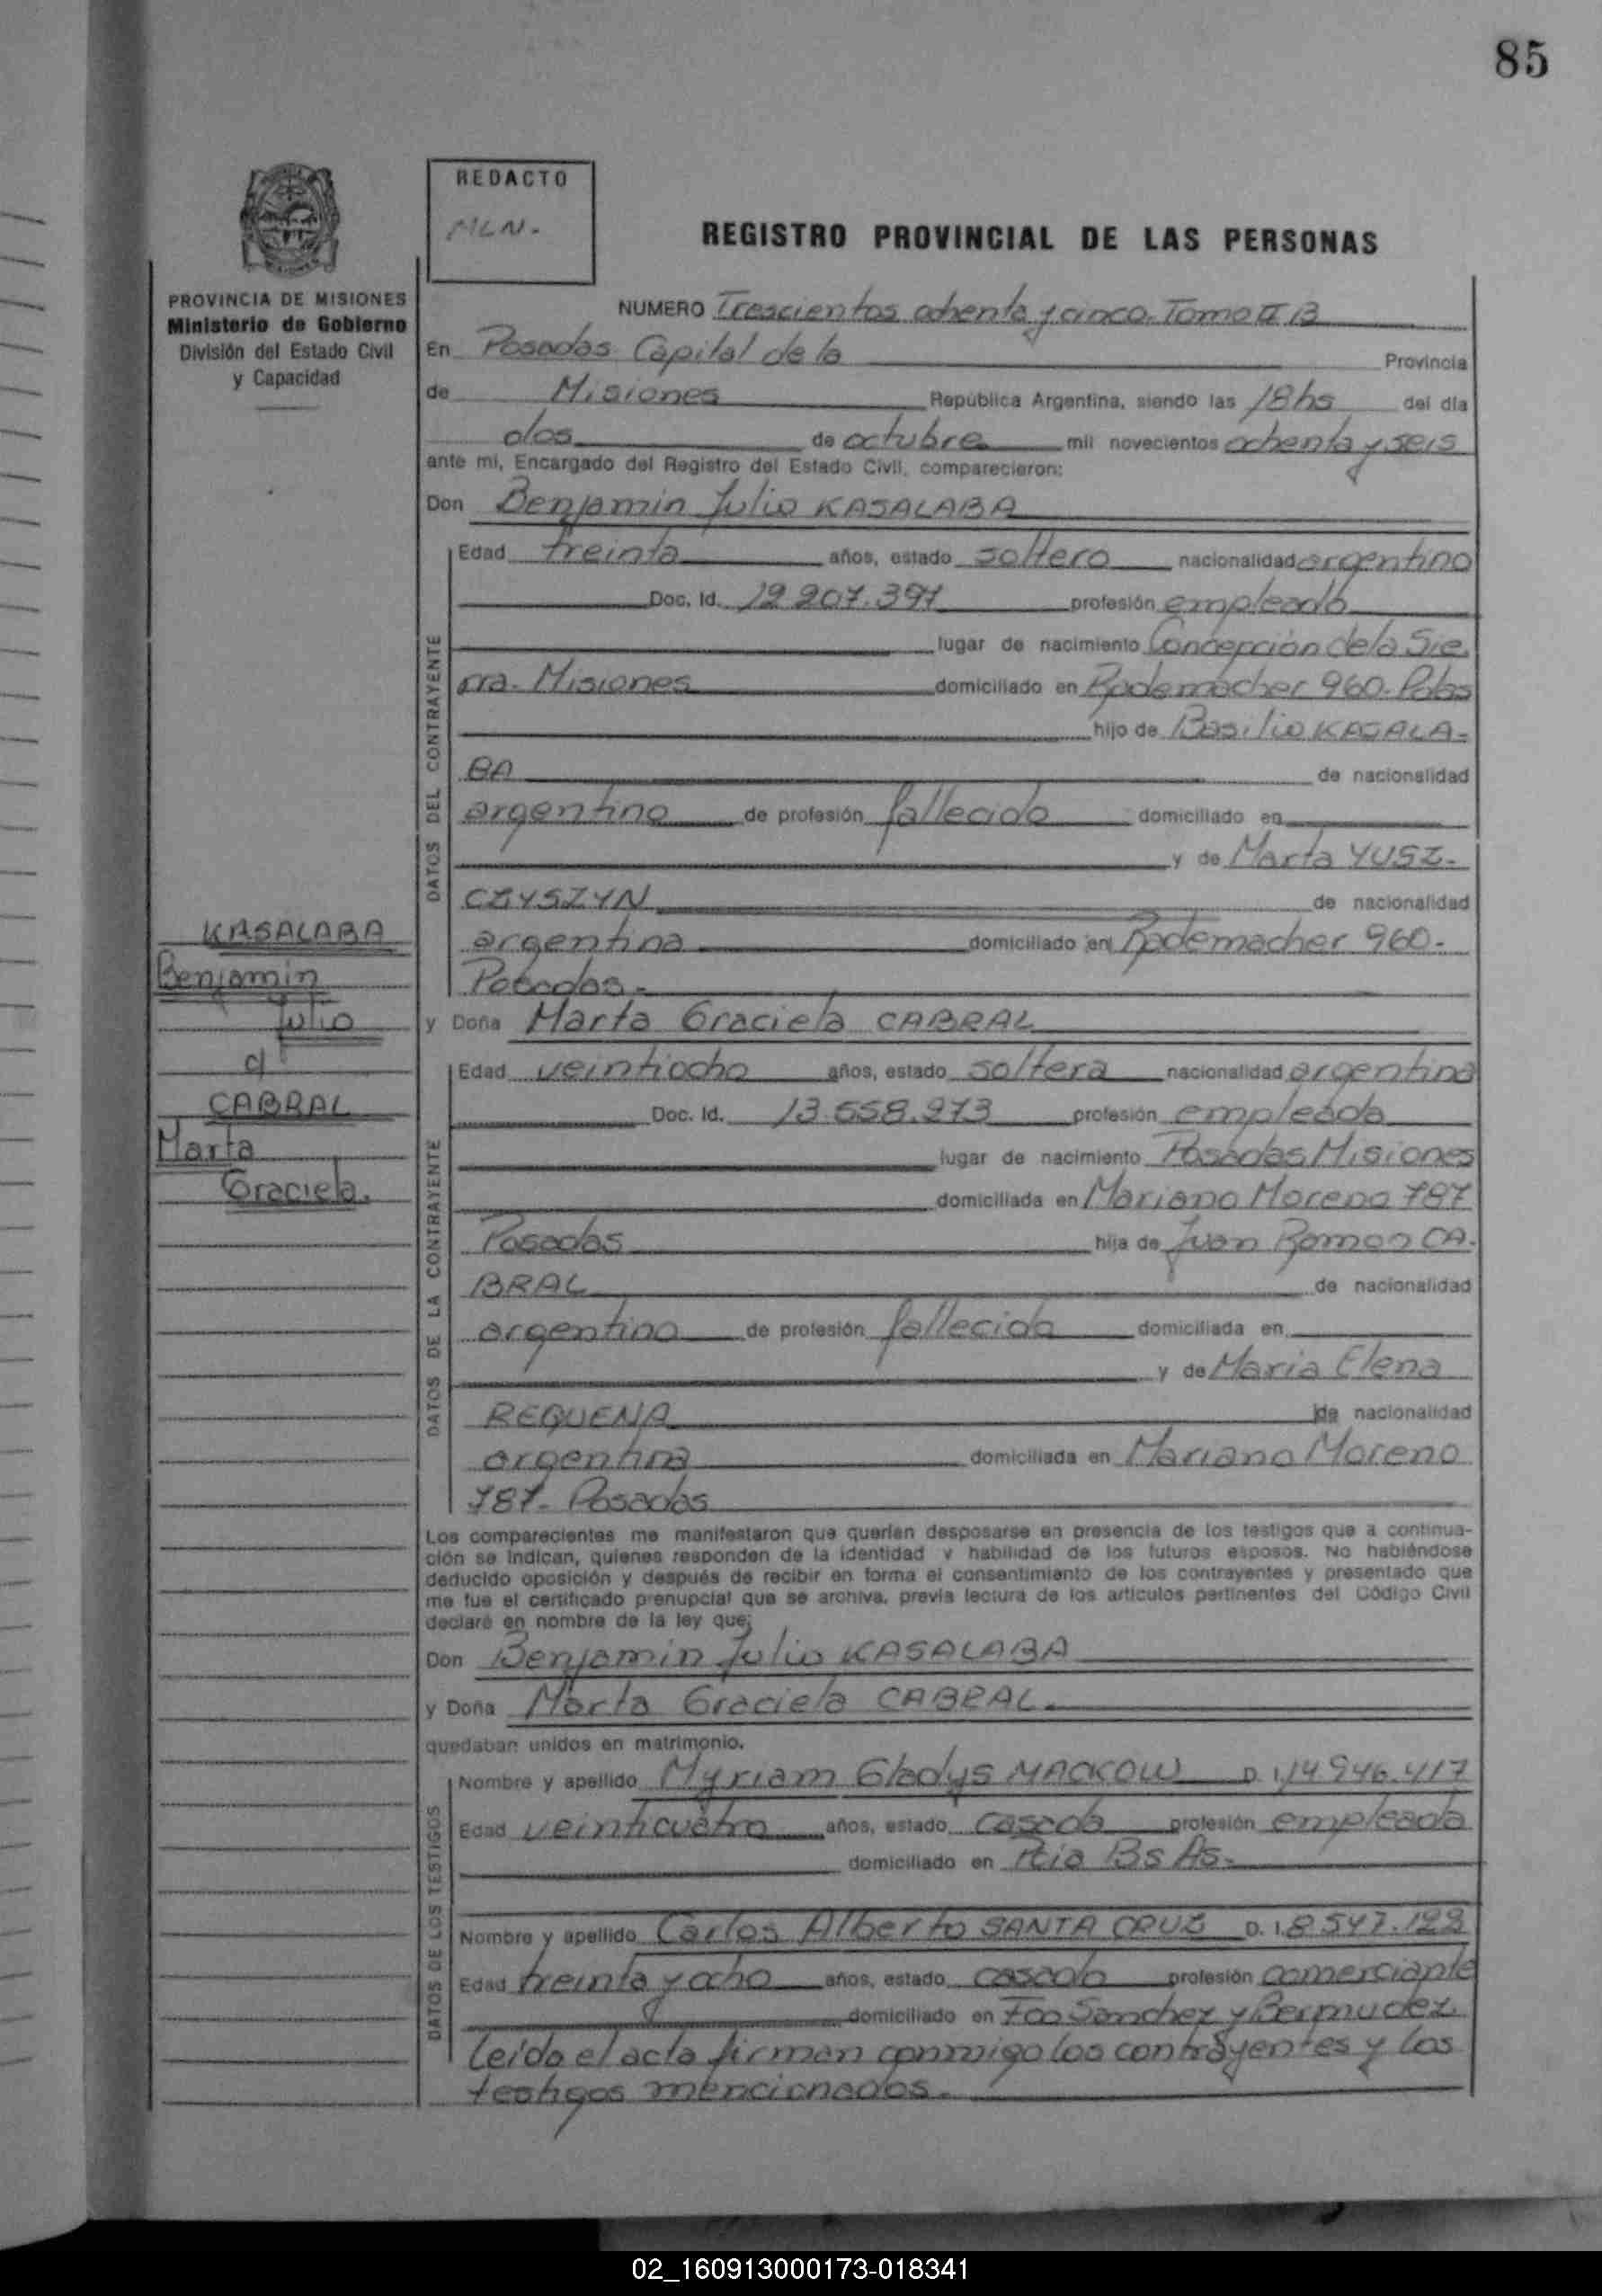 85
REDACTO
MLN.
REGISTRO PROVINCIAL DE LAS PERSONAS
PROVINCIA DE MISIONES
Ministerio de Gobierno
División del Estado Civil
y Capacidad
NUMERO Trescientos ochenta y cinco. Tomo II B
En Posadas Capital de la Provincia
de Misiones República Argentina, siendo las 18hs del día
dos de octubre mil novecientos ochenta y seis
ante mí, Encargado del Registro del Estado Civil, comparecieron:
Don Benjamin Julio KASALABA
DATOS DEL CONTRAYENTE
Edad treinta años, estado soltero nacionalidad argentino
Doc. Id. 12 207.397 profesión empleado
lugar de nacimiento Concepción de la Sie
rra. Misiones domiciliado en Rademacher 960. Pdas
hijo de Basilio KASALA-
BA de nacionalidad
argentino de profesión fallecido domiciliado en
y de Marta YUSZ-
CZYSZYN de nacionalidad
argentina domiciliado en Rademacher 960.
Posadas.
y Doña Marta Graciela CABRAL
DATOS DE LA CONTRAYENTE
Edad veintiocho años, estado soltera nacionalidad argentina
Doc. Id. 13.558.973 profesión empleada
lugar de nacimiento Posadas Misiones
domiciliada en Mariano Moreno 787
Posadas hija de Juan Ramon CA-
BRAL de nacionalidad
argentino de profesión fallecido domiciliada en
y de Maria Elena
REQUENA de nacionalidad
argentina domiciliada en Mariano Moreno
787. Posadas
KASALABA
Benjamin
Julio
c/
CABRAL
Marta
Graciela.
Los comparecientes me manifestaron que querían desposarse en presencia de los testigos que a continua-
ción se indican, quienes responden de la identidad y habilidad de los futuros esposos. No habiéndose
deducido oposición y después de recibir en forma el consentimiento de los contrayentes y presentado que
me fue el certificado prenupcial que se archiva, previa lectura de los artículos pertinentes del Código Civil
declaré en nombre de la ley que;
Don Benjamin Julio KASALABA
y Doña Marta Graciela CABRAL.
quedaban unidos en matrimonio.
DATOS DE LOS TESTIGOS
Nombre y apellido Myriam Gladys MACKOW D. I. 14 946.417
Edad veinticuatro años, estado casada profesión empleada
domiciliado en Pcia Bs As.
Nombre y apellido Carlos Alberto SANTA CRUZ D. I. 8 547.122
Edad treinta y ocho años, estado casado profesión comerciante
domiciliado en Fco Sanchez y Bermudez
Leido el acta firman conmigo los contrayentes y los
testigos mencionados.
02_160913000173-018341